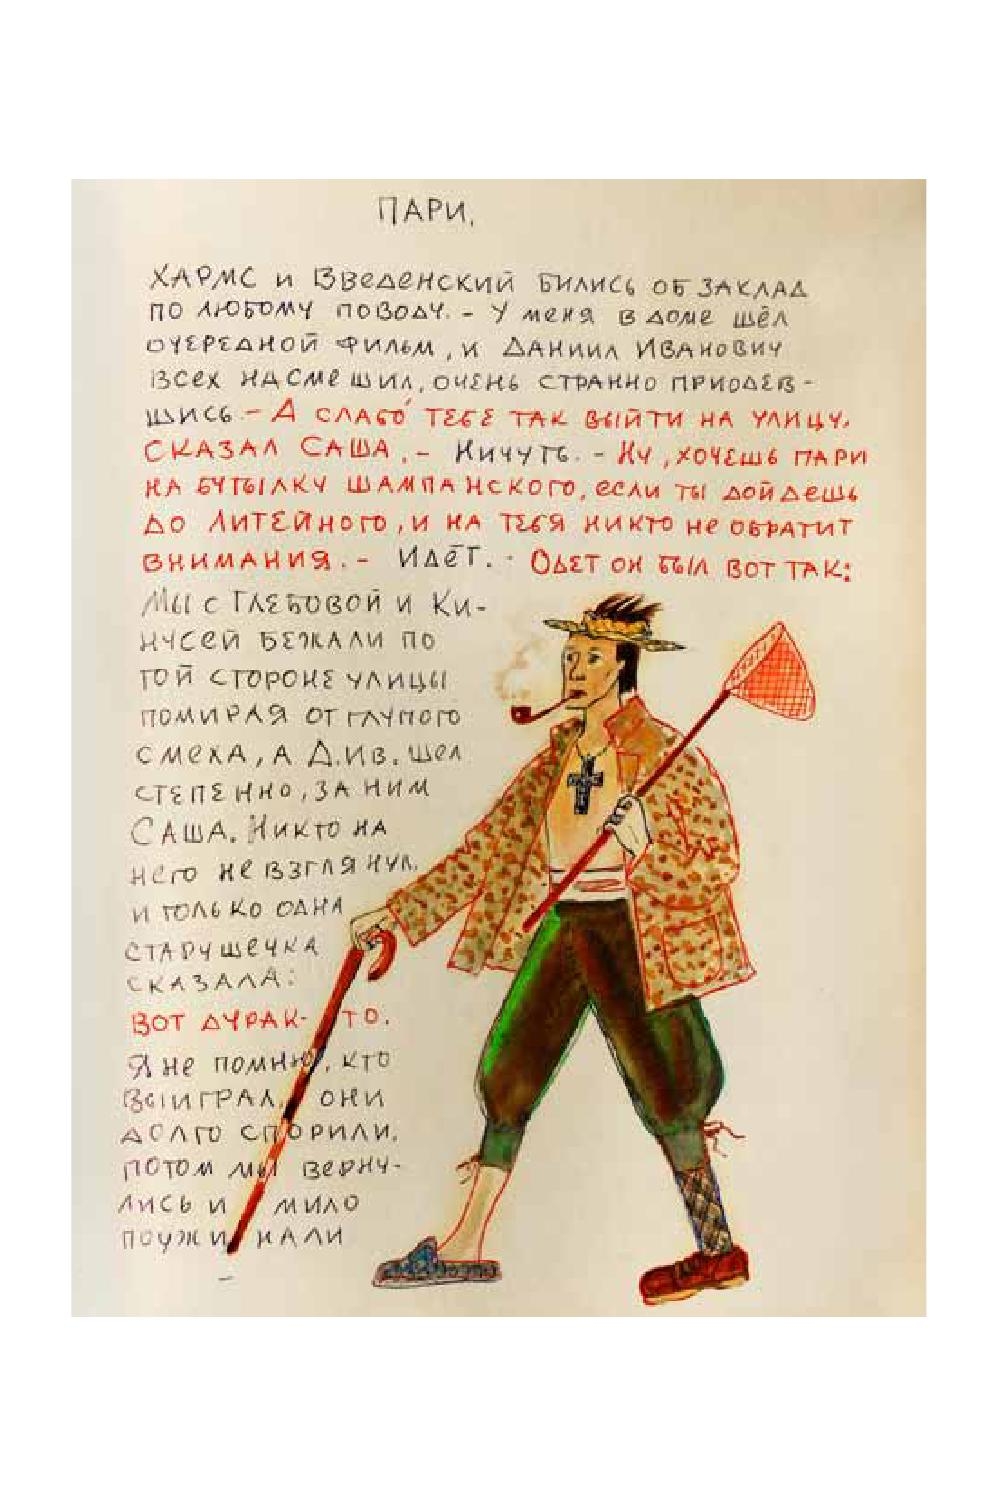 ПАРИ.
ХАРМС и ВВЕДЕНСКИЙ БИЛИСЬ ОБ ЗАКЛАД
ПО ЛЮБОМУ ПОВОДУ. - У МЕНЯ В ДОМЕ ШЁЛ
ОЧЕРЕДНОЙ ФИЛЬМ, И ДАНИИЛ ИВАНОВИЧ
ВСЕХ НАСМЕШИЛ, ОЧЕНЬ СТРАННО ПРИОДЕВ-
ШИСЬ - А СЛАБО́ ТЕБЕ ТАК ВЫЙТИ НА УЛИЦУ,
СКАЗАЛ САША. - НИЧУТЬ. - НУ, ХОЧЕШЬ ПАРИ
НА БУТЫЛКУ ШАМПАНСКОГО, ЕСЛИ ТЫ ДОЙДЕШЬ
ДО ЛИТЕЙНОГО, И НА ТЕБЯ НИКТО НЕ ОБРАТИТ
ВНИМАНИЯ. - ИДЁТ. - ОДЕТ ОН БЫЛ ВОТ ТАК:
МЫ С ГЛЕБОВОЙ И КИ-
НУСЕЙ БЕЖАЛИ ПО
ТОЙ СТОРОНЕ УЛИЦЫ
ПОМИРАЯ ОТ ГЛУПОГО
СМЕХА, А Д.ИВ. ШЕЛ
СТЕПЕННО, ЗА НИМ
САША. НИКТО НА
НЕГО НЕ ВЗГЛЯНУЛ,
И ТОЛЬКО ОДНА
СТАРУШЕЧКА
СКАЗАЛА:
ВОТ ДУРАК-ТО.
Я НЕ ПОМНЮ, КТО
ВЫИГРАЛ, ОНИ
ДОЛГО СПОРИЛИ,
ПОТОМ МЫ ВЕРНУ-
ЛИСЬ И МИЛО
ПОУЖИНАЛИ